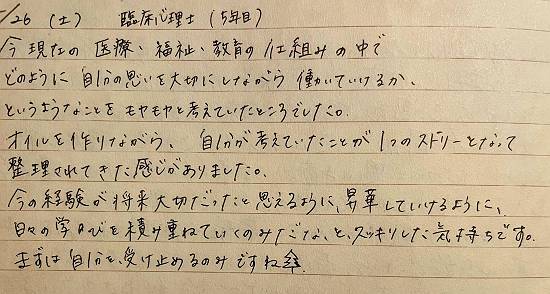 /26 (土) 臨床心理士 (5年目)
今現在の 医療・福祉・教育の仕組みの中で
どのように 自分の思いを大切にしながら 働いていけるか、
というようなことをモヤモヤと考えていたところでした。
オイルを作りながら、自分が考えていたことが 1つのストリーとなって
整理されてきた感じがありました。
今の経験が将来大切だったと思えるように、昇華していけるように、
日々の学びを積み重ねていくのみだな、と、スッキリした気持ちです。
まずは自分を、受け止めるのみですね